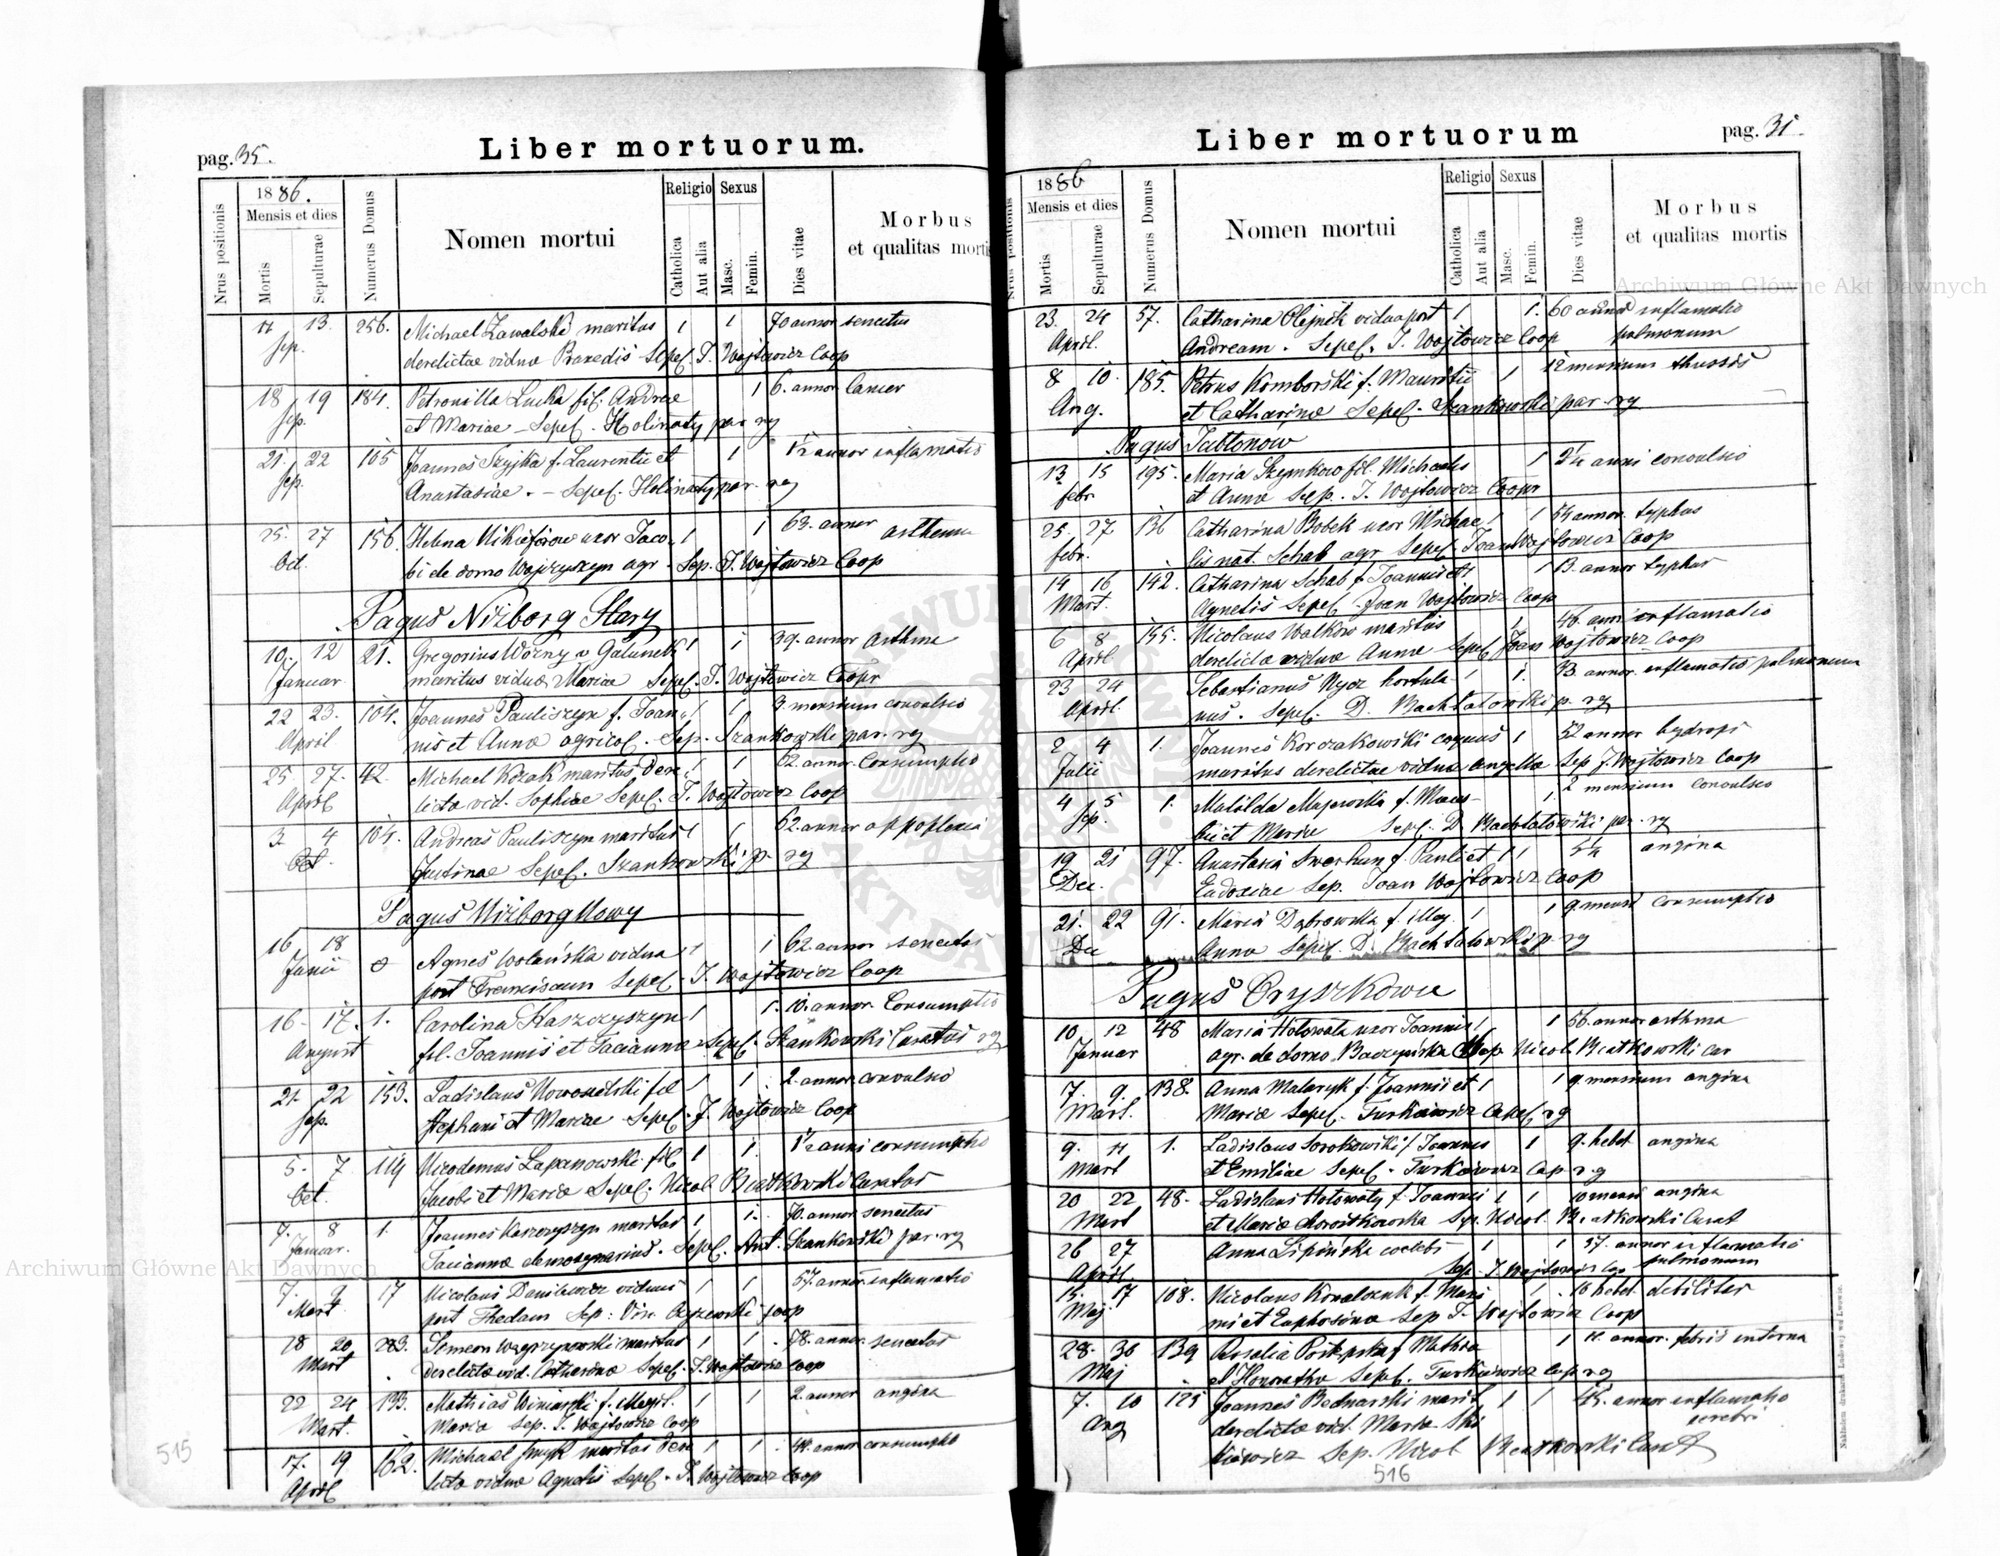 pag. 35.
Liber mortuorum.
1886.
Nrus positionis
Mensis et dies
Mortis
Sepulturae
Numerus Domus
Nomen mortui
Religio
Catholica
Aut alia
Sexus
Masc.
Femin.
Dies vitae
Morbus
et qualitas mortis
11 13. 256. Michael Zawalski maritus 1 1 70 annor senectus
Sep. derelictae viduae Praxedis Sepel. J. Wojtowicz Coop
18 19 184. Petronilla Lucka fil. Andreae 1 6. annor cancer
Sep. et Mariae - Sepel. Holinaty par rg
21. 22 105 Joannes Szyjka f. Laurentii et 1 1½ annor inflamatio
Sep. Anastasiae. - Sepel. Holinaty par. rg
25. 27 156. Helena Nikiforow uxor Jaco 1 1 63. annor asthma
Oct. bi de domo Wojczyszyn agr - Sep. J. Wojtowicz Coop
Pagus Niżborg Stary
10. 12 21. Gregorius Woźny v Galunek 1 1 39. annor asthme
Januar maritus viduae Mariae Sepel. J. Wojtowicz Coopr
22 23. 104. Joannes Pauliszyn f. Joan 1 1 9 mensium convulsio
April nis et Annae agricol. Sep. Szankowski par. rg
25. 27. 42. Michael Kozak maritus dere 1 1 62. annor. Consumptio
April lictae vid. Sophiae Sepel. J. Wojtowicz Coop
3 4 104. Andreas Pauliszyn maritus 1 1 62. annor appoplexia
Oct. Justinae Sepel. Szankowski p. rg
Pagus Niżborg Nowy
16 18 Agnes Wolańska vidua 1 1 62. annor senectus
Junii post Franciscum Sepel. J. Wojtowicz Coop
16. 17. 1. Carolina Kaszczyszyn 1 1. 10. annor. Consumptio
August fil. Joannis et Tacianna Sepel. Szankowski Curatus rg
21. 22 153. Ladislaus Nowosielski fil 1 1 2. annor convulsio
Sep. Stephani et Mariae Sepel. J. Wojtowicz Coop
5. 7 119 Nicodemus Lapanowski fil 1 1. 1½ anni consumptio
Oct. Jacobi et Mariae Sepel. Nicol Białkowski Curatus
7. 8 1. Joannes Kaszczyszyn maritus 1 1. 70. annor senectus
Januar. Taciannae elemosynarius. Sepel. Ant. Szankowski par. rg
7. 9 17 Nicolaus Danilewicz viduus 1 1 57. annor inflamatio
Mart post Thedam Sep: Vin. Czyżewski Coop
18 20 283. Simeon Węgrzynowski maritus 1 1. 78. annor. senectus
Mart derelictae vid. Catharinae Sepel. J. Wojtowicz Coop
22 24 133. Mathias Winiarski f. illegit. 1 1 2. annor angina
Mart. Maria Sep. J. Wojtowicz Coop
17. 19 162. Michael maritus dere 1 1. 44. annor consumptio
April licta viduae Agnetis Sepel. J. Wojtowicz Coop
515
Liber mortuorum
pag. 35.
1886
Nrus positionis
Mensis et dies
Mortis
Sepulturae
Numerus Domus
Nomen mortui
Religio
Catholica
Aut alia
Sexus
Masc.
Femin.
Dies vitae
Morbus
et qualitas mortis
23. 24 57. Catharina Olejnik vidua post 1 1. 60 annor inflamatio
April. Andream. Sepel. J. Wojtowicz Coop pulmonum
8 10. 185. Petrus Komborski f. Mauritii 1 12 mensium thussis
Aug. et Catharinae Sepel. Szankowski par. rg
Pagus Jabłonow
13 15 195. Maria Szymkow fil. Michaelis 1 2¼ anni convulsio
febr. et Annae Sep. J. Wojtowicz Coopr
25. 27. 136 Catharina Bobek uxor Michae 1 1 54 annor. typhus
febr. lis nat. Schab agr Sepel. Joan Wojtowicz Coop
14 16 142. Catharina Schab f. Joannis et 1 13. annor typhus
Mart. Agnetis Sepel Joan Wojtowicz Coop
6 8 155. Nicolaus Walkow maritus 1 46. ann inflamatio
April derelictae viduae Annae Sepel Joan Wojtowicz Coop
23 24 Sebastianus Nycz hortula 1 1. 33. annor. inflamatio pulmonum
April. nus. Sepel. D. Bachtalowski p. rg
2 4 1. Joannes Korczakowski coquus 1 52 annor hydrops
Julii maritus derelictae viduae Angella Sep J. Wojtowicz Coop
4 5 1. Matilda Majewska f. Mar 1. 2 mensium convulsio
Sep. et Mariae Sepel. D. Bachtalowski par. rg
19 21 97. Anastasia Swerhun f. Pauli et 1 1 5¼ angina
Dec. Eudoxiae Sep. Joan Wojtowicz Coop
21. 22 91. Maria Dąbrowska f. illeg. 1 1 9 mens consumptio
Dec Anna Sepel. D. Bachtalowski p. rg
Pagus Oryszkowce
10 12 48 Maria Hołowata uxor Joannis 1 1 56. annor asthma
Januar agr. de domo Baczyńska Sep. Nicol. Białkowski Cur
7. 9. 138. Anna Malaryk f. Joannis et 1 1 9. mensium angina
Mart. Mariae Sepel. Turkiewicz Capel. rg
9. 11 1. Ladislaus Sorokowski f Joannis 1 9. hebd. angina
Mart et Emiliae Sepel. Turkiewicz Cap. rg
20 22 48. Ladislaus Hołowaty f. Joannis 1 1 10 mens angina
Mart et Maria Sep. Nicol. Białkowski Curat
26 27 Anna Lipińska coelebs 1 1 37. annor inflamatio
April. Sep. J. Wojtowicz Coo pulmonum
15. 17 108. Nicolaus Kowalczuk f. Maxi 1 10 hebd. debilitas
Maj mi et Euphrosinae Sep J. Wojtowicz Coop
28. 30 139 Rosalia f Mathia 1 11. annor. febris interna
Maj et Honoratha Sepel. Turkiewicz Cap rg
7. 10 125 Joannes Bednarski marit 1 1 45. annor inflamatio
Aug derelictae vid. Mariae cerebri
Sep. Nicol Białkowski Curat
516
Nakładem drukarni Ludowej we Lwowie.
Archiwum Główne Akt Dawnych
Archiwum Główne Akt Dawnych
ARCHIWUM GŁÓWNE AKT DAWNYCH